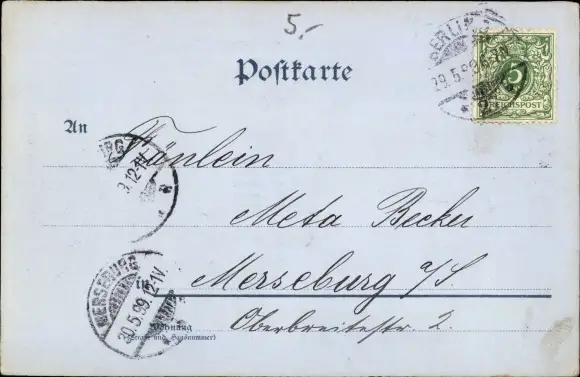 5.-
BERLIN
29.5.99.6-7N
5
REICHSPOST
Postkarte
An
Fräulein
Meta Becker
in Merseburg a/S.
Oberbreitestr. 2.
Wohnung
(Straße und Hausnummer)
BURG
9.12-1V.
MERSEBURG
30.5.99.12-1V.